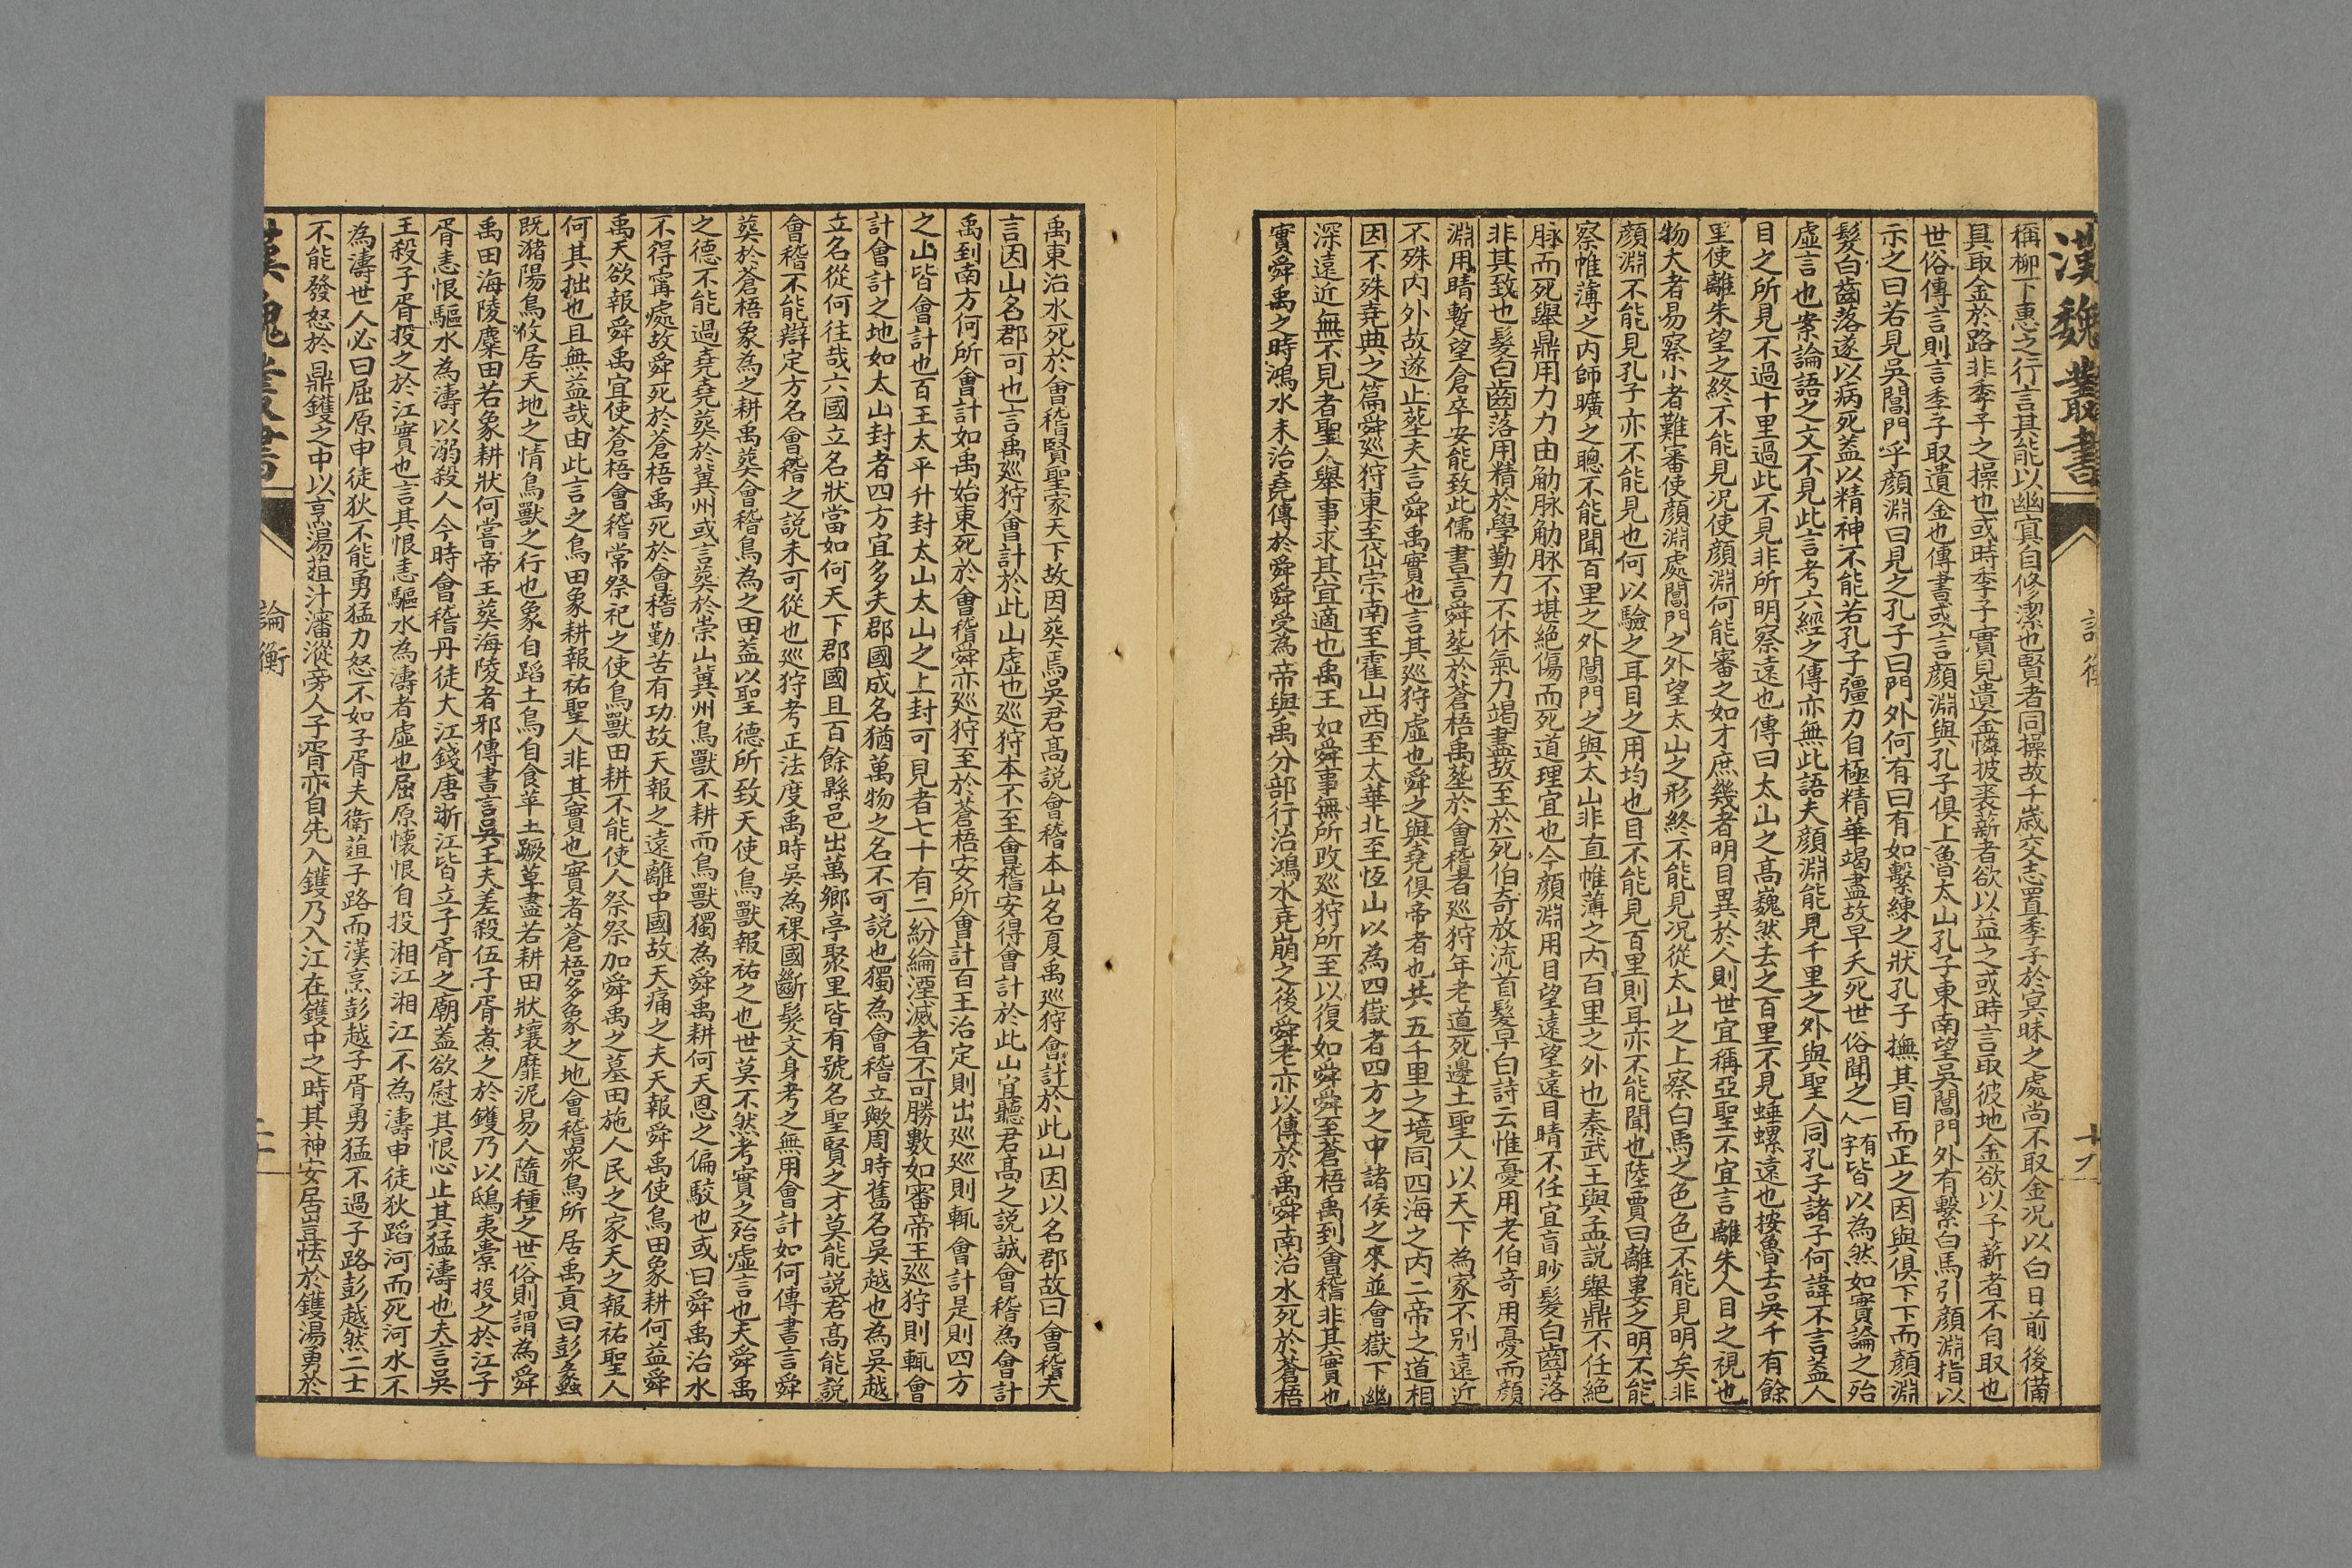 漢魏叢書
論衡
十九
稱柳下惠之行言其能以幽冥自修潔也賢者同操故千歲交志置季子於冥昧之處尚不取金况以白日前後備
具取金於路非季子之操也或時季子實見遺金憐披裘薪者欲以益之或時言取彼地金欲以予薪者不自取也
世俗傳言則言季子取遺金也傳書或言顏淵與孔子俱上魯太山孔子東南望吳閶門外有繫白馬引顏淵指以
示之曰若見吳閶門乎顏淵曰見之孔子曰門外何有曰有如繫練之狀孔子撫其目而正之因與俱下下而顏淵
髮白齒落遂以病死蓋以精神不能若孔子彊力自極精華竭盡故早夭死世俗聞之一有人字皆以為然如實論之殆
虛言也案論語之文不見此言考六經之傳亦無此語夫顏淵能見千里之外與聖人同孔子諸子何諱不言蓋人
目之所見不過十里過此不見非所明察遠也傳曰太山之高巍然去之百里不見埵螺遠也按魯去吳千有餘
里使離朱望之終不能見况使顏淵何能審之如才庶幾者明目異於人則世宜稱亞聖不宜言離朱人目之視也
物大者易察小者難審使顏淵處閶門之外望太山之形終不能見况從太山之上察白馬之色色不能見明矣非
顏淵不能見孔子亦不能見也何以驗之耳目之用均也目不能見百里則耳亦不能聞也陸賈曰離婁之明不能
察帷薄之內師曠之聰不能聞百里之外閶門之與太山非直帷薄之內百里之外也秦武王與孟說舉鼎不任絕
脉而死舉鼎用力力由觔脉觔脉不堪絕傷而死道理宜也今顏淵用目望遠望遠目睛不任宜盲眇髮白齒落
非其致也髮白齒落用精於學勤力不休氣力竭盡故至於死伯奇放流首髮早白詩云惟憂用老伯奇用憂而顏
淵用睛暫望倉卒安能致此儒書言舜塟於蒼梧禹塟於會稽者巡狩年老道死邊土聖人以天下為家不別遠近
不殊內外故遂止塟夫言舜禹實也言其巡狩虛也舜之與堯俱帝者也共五千里之境同四海之內二帝之道相
因不殊堯典之篇舜巡狩東至岱宗南至霍山西至太華北至恆山以為四嶽者四方之中諸侯之來並會嶽下幽
深遠近無不見者聖人舉事求其宜適也禹王如舜事無所改巡狩所至以復如舜舜至蒼梧禹到會稽非其實也
實舜禹之時鴻水未治堯傳於舜舜受為帝與禹分部行治鴻水堯崩之後舜老亦以傳於禹舜南治水死於蒼梧
禹東治水死於會稽賢聖家天下故因葬焉吳君高說會稽本山名夏禹巡狩會計於此山因以名郡故曰會稽夫
言因山名郡可也言禹巡狩會計於此山虛也巡狩本不至會稽安得會計於此山宜聽君高之說誠會稽為會計
禹到南方何所會計如禹始東死於會稽舜亦巡狩至於蒼梧安所會計百王治定則出巡巡則輒會計是則四方
之山皆會計也百王太平升封太山太山之上封可見者七十有二紛綸湮滅者不可勝數如審帝王巡狩則輒會
計會計之地如太山封者四方宜多夫郡國成名猶萬物之名不可說也獨為會稽立歟周時舊名吳越也為吳越
立名從何往哉六國立名狀當如何天下郡國且百餘縣邑出萬鄉亭聚里皆有號名聖賢之才莫能說君高能說
會稽不能辯定方名會稽之說未可從也巡狩考正法度禹時吳為裸國斷髮文身考之無用會計如何傳書言舜
葬於蒼梧象為之耕禹葬會稽鳥為之田蓋以聖德所致天使鳥獸報祐之也世莫不然考實之殆虛言也夫舜禹
之德不能過堯堯葬於冀州或言葬於崇山冀州鳥獸不耕而鳥獸獨為舜禹耕何天恩之偏駮也或曰舜禹治水
不得寗處故舜死於蒼梧禹死於會稽勤苦有功故天報之遠離中國故天痛之夫天報舜禹使鳥田象耕何益舜
禹天欲報舜禹宜使蒼梧會稽常祭祀之使鳥獸田耕不能使人祭祭加舜禹之墓田施人民之家天之報祐聖人
何其拙也且無益哉由此言之鳥田象耕報祐聖人非其實也實者蒼梧多象之地會稽眾鳥所居禹貢曰彭蠡
既瀦陽鳥攸居天地之情鳥獸之行也象自蹈土鳥自食苹土蹶草盡若耕田狀壤靡泥易人隨種之世俗則謂為舜
禹田海陵麋田若象耕狀何嘗帝王葬海陵者邪傳書言吳王夫差殺伍子胥煮之於鑊乃以鴟夷橐投之於江子
胥恚恨驅水為濤以溺殺人今時會稽丹徒大江錢唐浙江皆立子胥之廟蓋欲慰其恨心止其猛濤也夫言吳
王殺子胥投之於江實也言其恨恚驅水為濤者虛也屈原懷恨自投湘江湘江不為濤申徒狄蹈河而死河水不
為濤世人必曰屈原申徒狄不能勇猛力怒不如子胥夫衛菹子路而漢烹彭越子胥勇猛不過子路彭越然二士
不能發怒於鼎鑊之中以烹湯菹汁瀋漎旁人子胥亦自先入鑊乃入江在鑊中之時其神安居豈怯於鑊湯勇於
漢魏叢書
論衡
二十